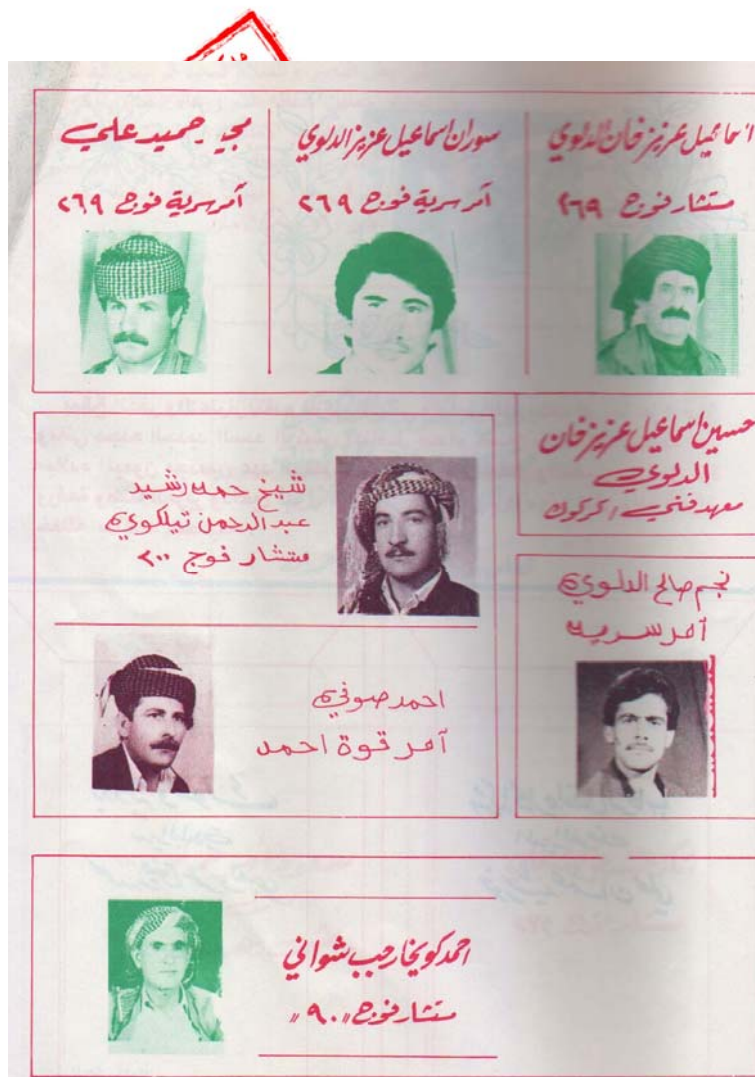 اسماعيل عزيز خان الدلوي
مستشار فوج ٢٦٩
سوران اسماعيل عزيز الدلوي
آمر سرية فوج ٢٦٩
مجيد حميد علي
آمر سرية فوج ٢٦٩
حسين اسماعيل عزيز خان
الدلوي
معهد فني / كركوك
شيخ حمه رشيد
عبد الرحمن تيلكوي
مستشار فوج ٢٠٠
نجم صالح الدلوي
آمر سريه
احمد صوفي
آمر قوة احمد
احمد كويخا رجب شواني
مستشار فوج "٩٠"